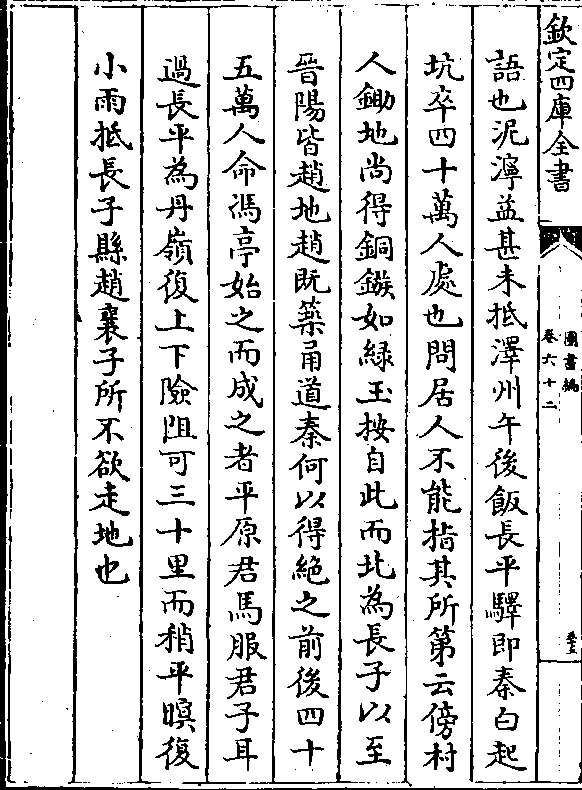 欽定四庫全書
圖書編
卷六十二
語也泥濘益甚未抵澤州午後飯長平驛即秦白起
坑卒四十萬人處也問居人不能指其所第云傍村
人鋤地尚得銅鏃如綠玉按自此而北為長子以至
晉陽皆趙地趙既築甬道秦何以得絶之前後四十
五萬人命馮亭始之而成之者平原君馬服君子耳
過長平為丹嶺復上下險阻可三十里而稍平暝復
小雨抵長子縣趙襄子所不欲走地也